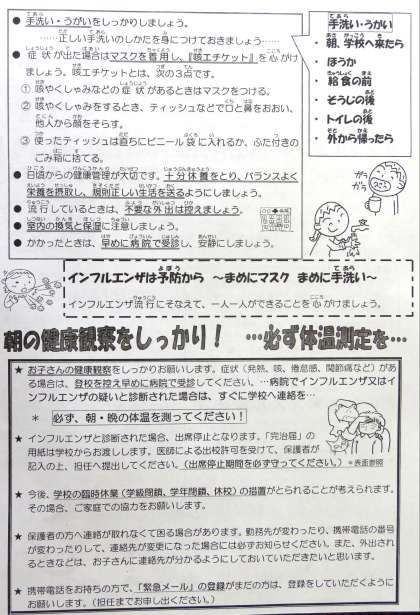 ● 手洗い・うがいをしっかりしましょう。
……正しい手洗いのしかたを身につけておきましょう……
● 症状が出た場合はマスクを着用し、『咳エチケット』を心がけ
ましょう。咳エチケットとは、次の3点です。
① 咳やくしゃみなどの症状があるときはマスクをつける。
② 咳やくしゃみをするとき、ティッシュなどで口と鼻をおおい、
他人から顔をそらす。
③ 使ったティッシュは直ちにビニール袋に入れるか、ふた付きの
ごみ箱に捨てる。
● 日頃からの健康管理が大切です。十分休養をとり、バランスよく
栄養を摂取し、規則正しい生活を送るようにしましょう。
● 流行しているときは、不要な外出は控えましょう。
● 室内の換気と保湿に注意しましょう。
● かかったときは、早めに病院で受診し、安静にしましょう。
手洗い・うがい
・ 朝、学校へ来たら
・ ほうか
・ 給食の前
・ そうじの後
・ トイレの後
・ 外から帰ったら
インフルエンザは予防から ～まめにマスク まめに手洗い～
インフルエンザ流行にそなえて、一人一人ができることを心がけましょう。
朝の健康観察をしっかり! …必ず体温測定を…
★ お子さんの健康観察をしっかりお願いします。症状(発熱、咳、倦怠感、関節痛など)が
ある場合は、登校を控え早めに病院で受診してください。…病院でインフルエンザ又はイ
ンフルエンザの疑いと診断された場合は、すぐに学校へ連絡を…
＊ 必ず、朝・晩の体温を測ってください!
★ インフルエンザと診断された場合、出席停止となります。「完治届」の
用紙は学校からお渡しします。医師による出校許可を受けて、保護者が
記入の上、担任へ提出してください。(出席停止期間を必ず守ってください。)＊表面参照
★ 今後、学校の臨時休業(学級閉鎖、学年閉鎖、休校)の措置がとられることが考えられます。
その場合、ご家庭での協力をお願いします。
★ 保護者の方へ連絡が取れなくて困る場合があります。勤務先が変わったり、携帯電話の番号
が変わったりして、連絡先が変更になった場合には必ずお知らせください。また、外出され
るときなどは、お子さんに連絡先が分かるようにしておいていただきたいと思います。
★ 携帯電話をお持ちの方で、「緊急メール」の登録がまだの方は、登録をしていただくように
お願いします。(担任までお申し出ください。)